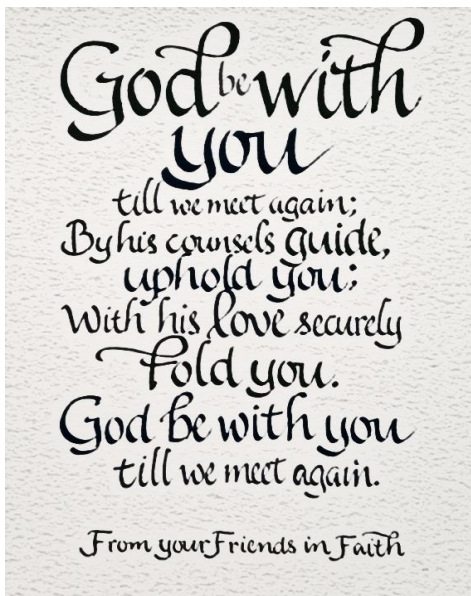 God be with
you
till we meet again;
By his counsels guide,
uphold you;
With his love securely
fold you.
God be with you
till we meet again.
From your Friends in Faith